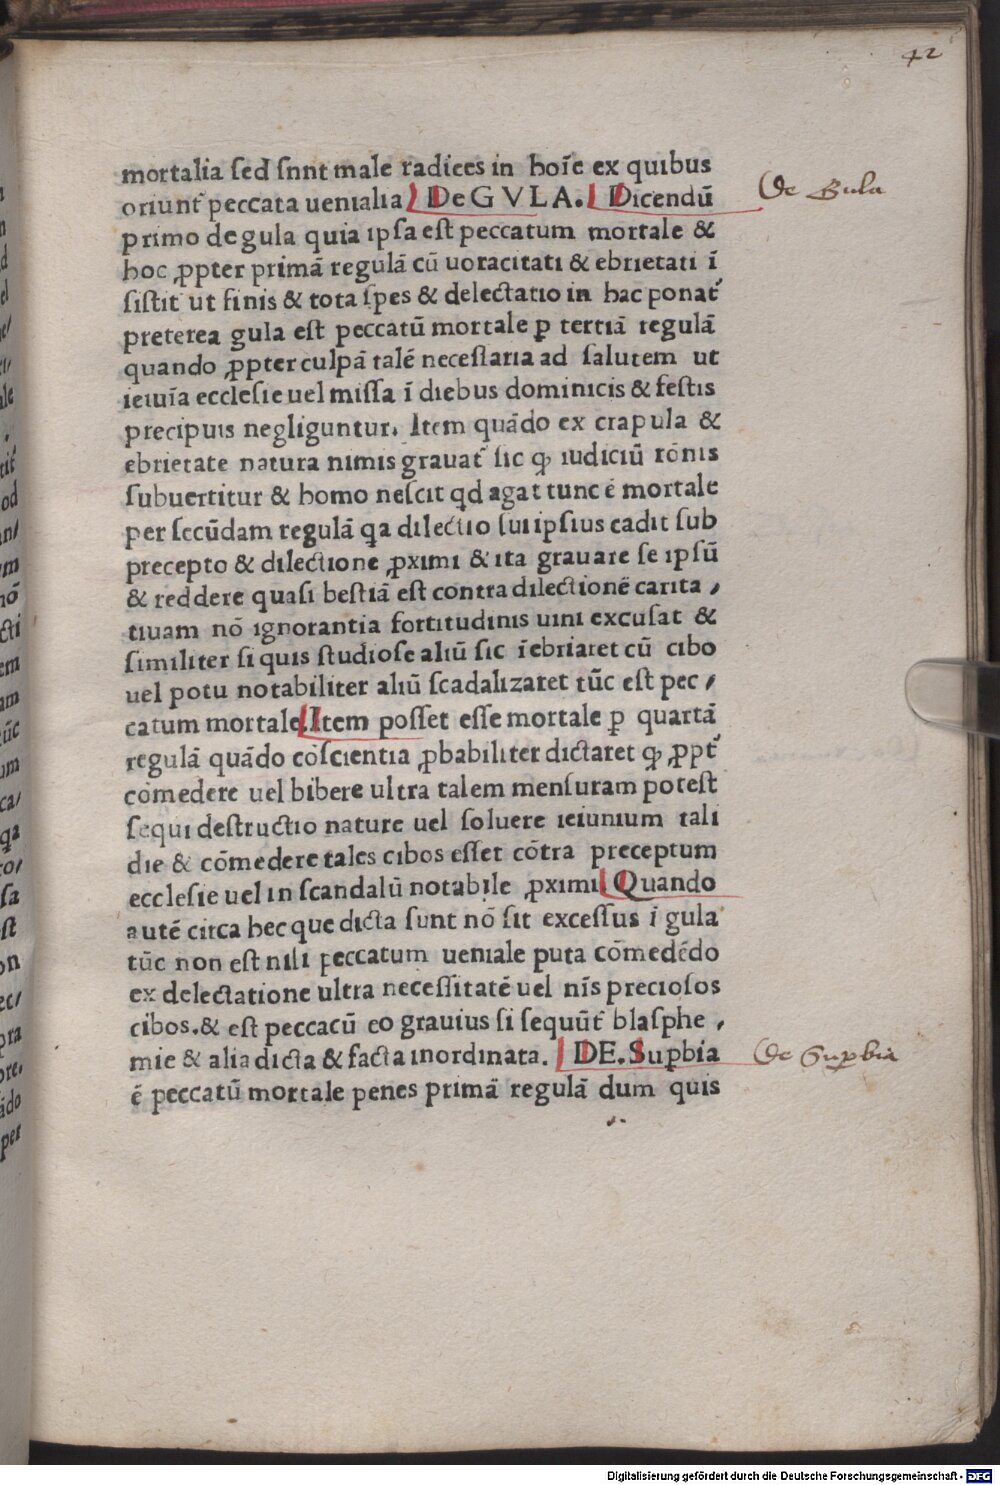 42
mortalia ſed ſnnt male radices in hoīe ex quibus
oriunt᷑ peccata uenialia De GVLA. Dicendū
de Gula
primo de gula quia ipſa eſt peccatum mortale &
hoc ꝓpter primā regulā cū uoracitati & ebrietati ī
ſiſtit ut finis & tota ſpes & delectatio in hac ponat᷑
preterea gula eſt peccatū mortale ꝑ tertiā regulā
quando ꝓpter culpā talē neceſſaria ad ſalutem ut
ieiuīa eccleſie uel miſſa ī diebus dominicis & feſtis
precipuis negliguntur. Item quādo ex crapula &
ebrietate natura nimis grauat᷑ ſic ꝙ iudiciū rōnis
ſubuertitur & homo neſcit qd agat tunc ē mortale
per ſecūdam regulā qa dilectio ſui ipſius cadit ſub
precepto & dilectione ꝓximi & ita grauare ſe ipſū
& reddere quaſi beſtiā eſt contra dilectionē carita ,
tiuam nō ignorantia fortitudinis uini excuſat &
ſimiliter ſi quis ſtudioſe aliū ſic īebriaret cū cibo
uel potu notabiliter aliū ſcādalizaret tūc eſt pec ,
catum mortale. Item poſſet eſſe mortale ꝑ quartā
regulā quādo cōſcientia ꝓbabiliter dictaret ꝙ ꝓpt᷑
cōmedere uel bibere ultra talem menſuram poteſt
ſequi deſtructio nature uel ſoluere ieiunium tali
die & cōmedere tales cibos eſſet cōtra preceptum
eccleſie uel in ſcandalū notabile ꝓximi Quando
autē circa hec que dicta ſunt nō ſit exceſſus ī gula
tūc non eſt niſi peccatum ueniale puta cōmedēdo
ex delectatione ultra neceſſitatē uel nīs precioſos
cibos.& eſt peccacū eo grauius ſi ſequūt᷑ blaſphe ,
mie & alia dicta & facta inordinata. DE. Suꝑbia
de Suꝑbia
ē peccatū mortale penes primā regulā dum quis
Digitalisierung gefördert durch die Deutsche Forschungsgemeinschaft - DFG